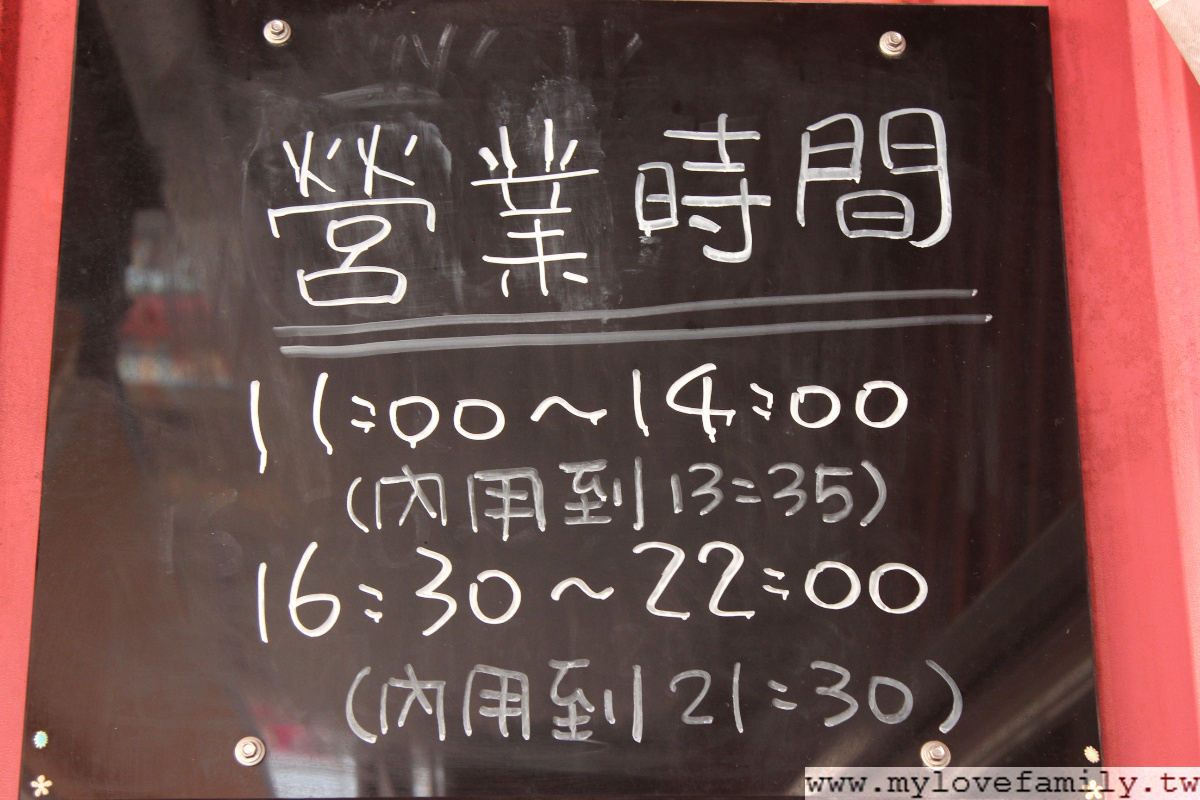 營業時間
11:00~14:00
(內用到13:35)
16:30~22:00
(內用到21:30)
www.mylovefamily.tw